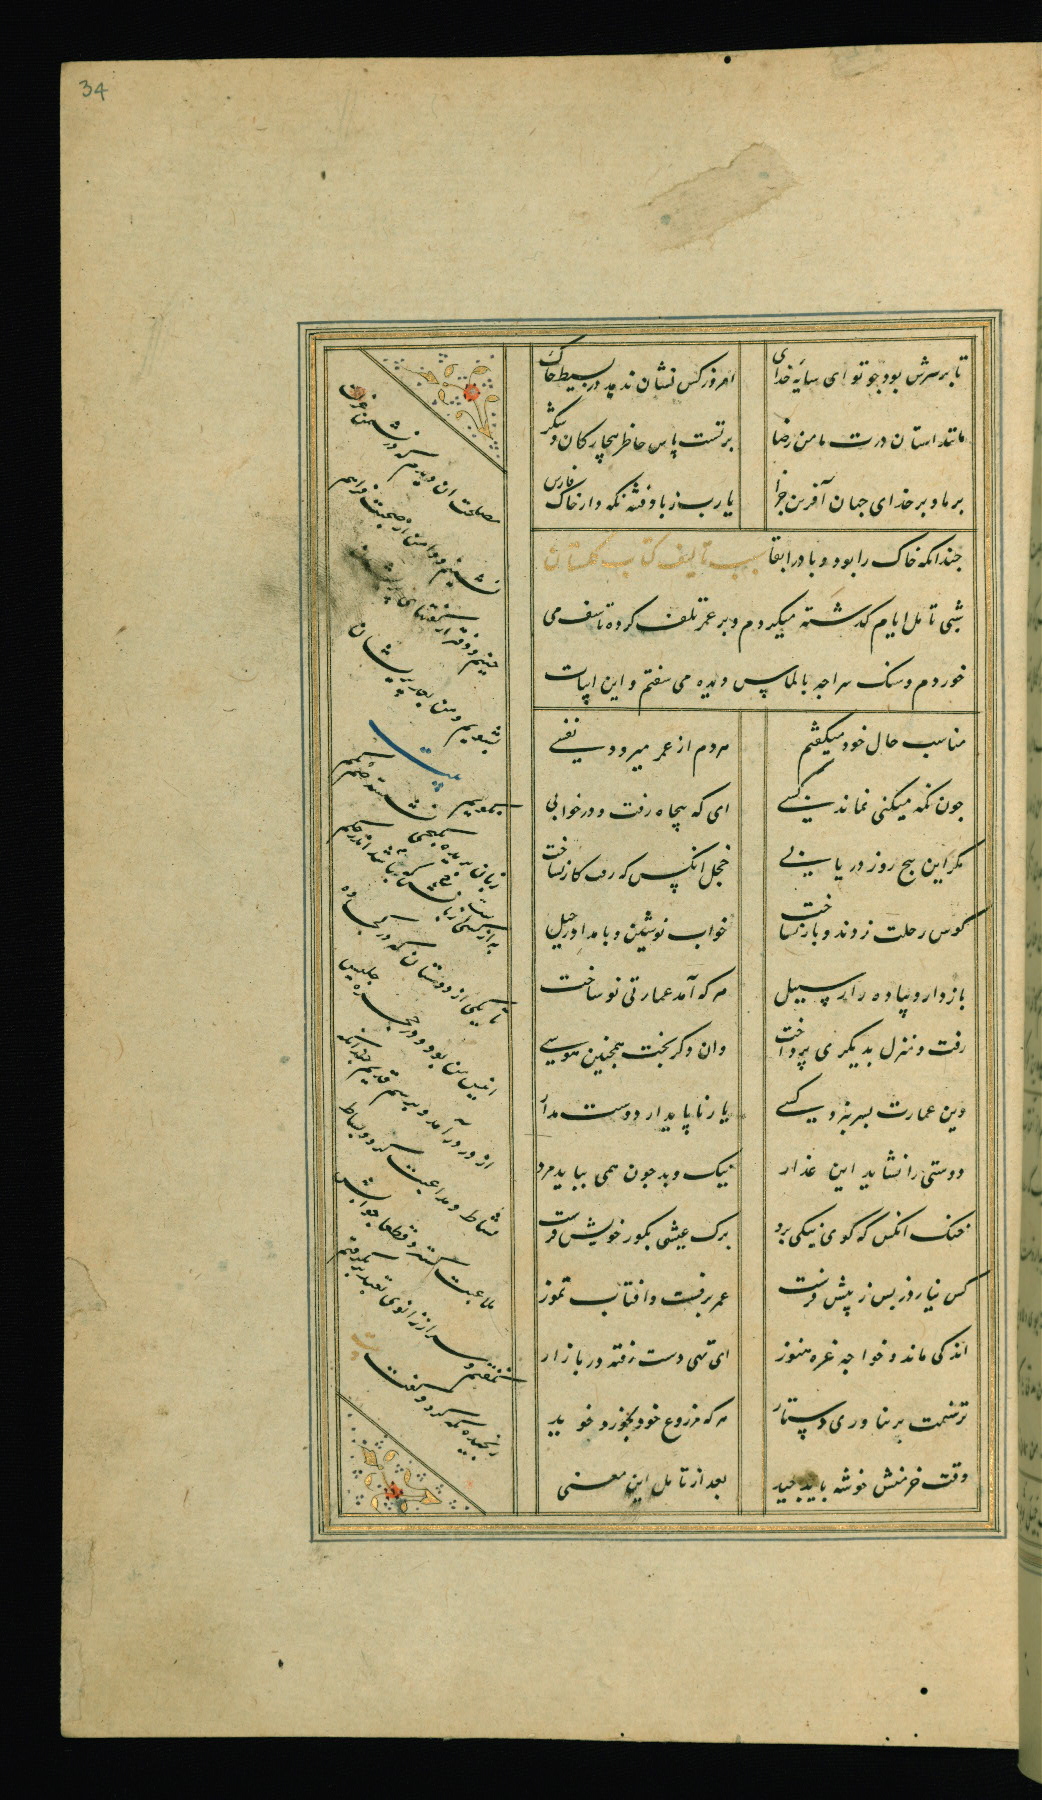 34
تا برسرش بود چو تو ای سایهٔ خدای
امروز کس نشان ندهد در بسیط خاک
مانند استان درت مامن رضا
برتست پاس خاطر بیچارکان و شکر
بر ما و بر خدای جهان آفرین جزا
یارب ز باد فتنه نکه دار خاک فارس
چندانکه خاک را بود و باد را بقا
سبب تالیف کتاب کلستان
شبی تامل ایام کذشته میکردم و بر عمر تلف کرده تاسف می
خوردم و سنک سراچه بالماس دیده می سفتم و این ابیات
مناسب حال خود میکفتم
هر دم از عمر میرود نفسی
چون نکه میکنی نماند بسی
ای که پنجاه رفت و در خوابی
مکر این پنج روز دریابی
خجل انکس که رفت و کار نساخت
کوس رحلت زدند و بار نساخت
خواب نوشین و بامداد رحیل
باز دارد پیاده را ز سبیل
هر که آمد عمارتی نو ساخت
رفت و منزل بدیکری پرداخت
وان دکر پخت همچنین هوسی
وین عمارت بسر نبرد کسی
یار ناپایدار دوست مدار
دوستی را نشاید این غدار
نیک و بد چون همی بباید مرد
خنک انکس که کوی نیکی برد
برک عیشی بکور خویش فرست
کس نیارد ز پس ز پیش فرست
عمر برفست و افتاب تموز
اندکی ماند و خواجه غره هنوز
ای تهی دست رفته در بازار
ترسمت بر نیاوری دستار
هر که مزروع خود بخورد خوید
وقت خرمنش خوشه باید چید
بعد از تامل این معنی
مصلحت ان دیدم که در نشیمن عزلت
نشینم و دامن از صحبت فراهم
چینم و دفتر از کفتهای پریشان
بشویم و من بعد پریشان
نکویم
بیت
زبان بریده بکنجی نشسته صم بکم
به از کسی که نباشد زبانش اندر حکم
تا یکی از دوستان که در کجاوه
انیس من بود و در حجره جلیس
از در درآمد و برسم قدیم چندانکه
نشاط و مداعبت کرد و بساط
ملاعبت کسترد جوابش
نکفتم و سر از زانوی تعبد بر نکرفتم
رنجیده نکه کرد و کفت